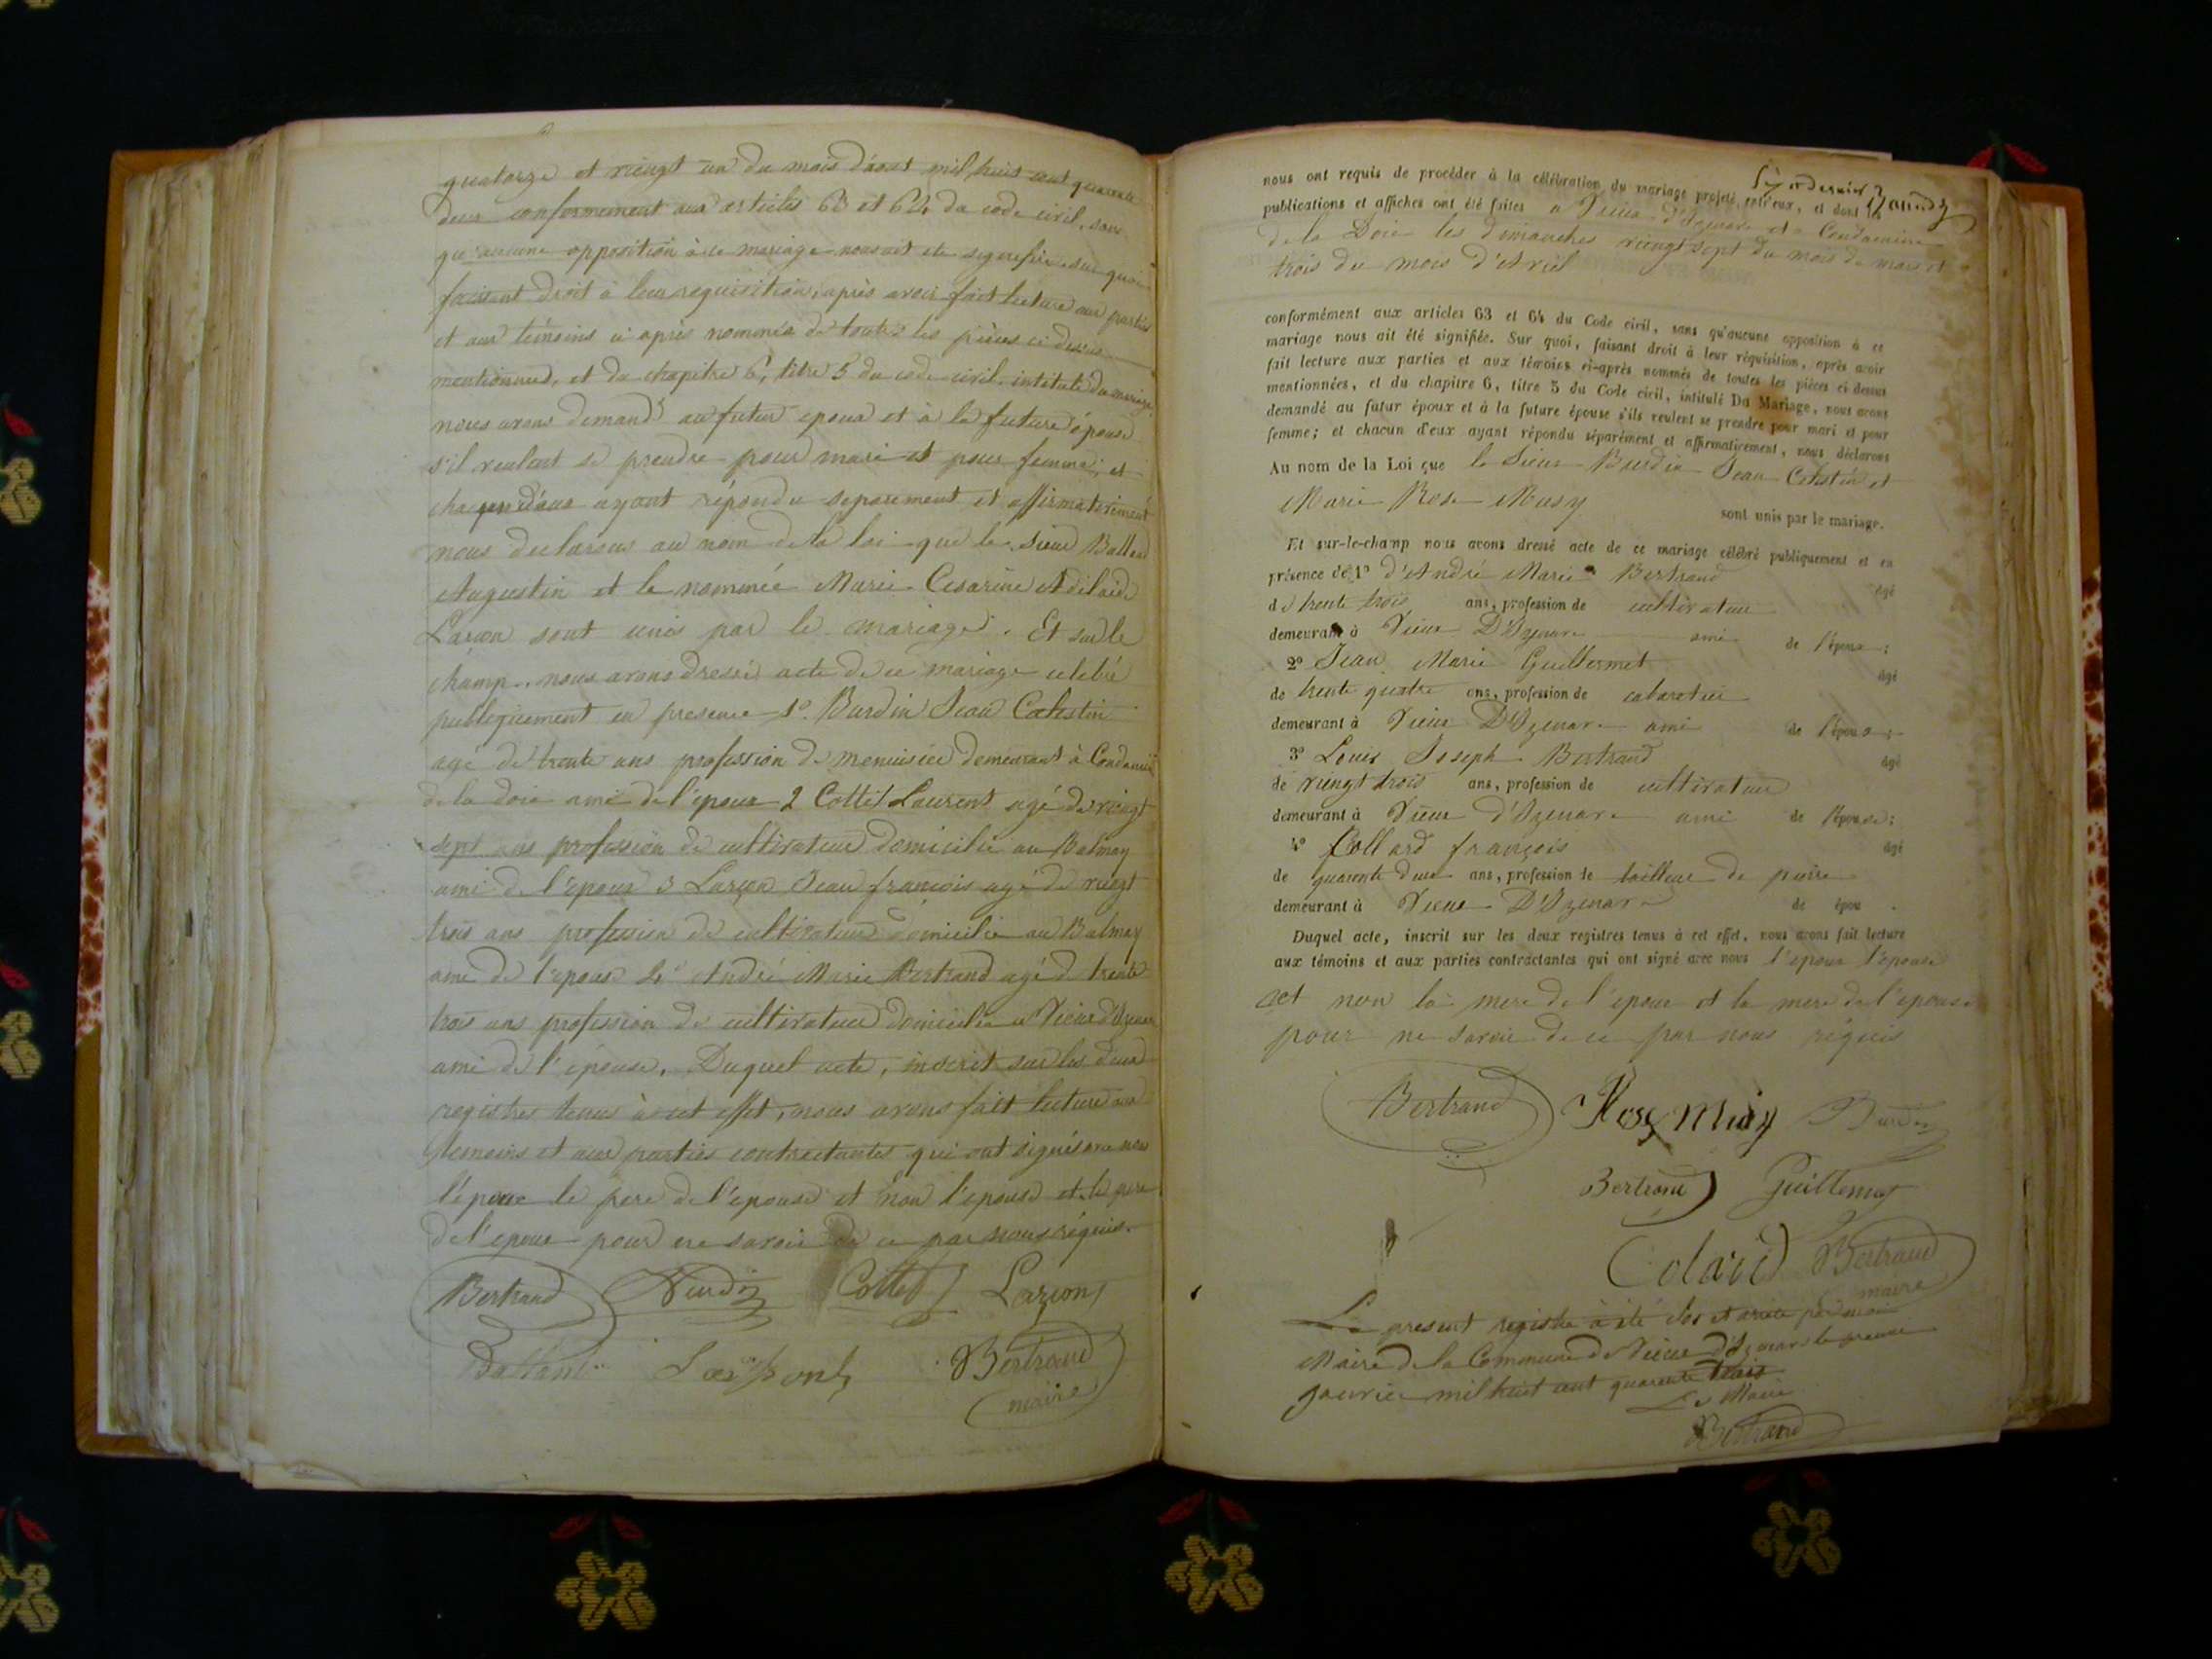 quatorze et vingt un du mois d'aout mil huit cent quarante
deux conformement aux articles 63 et 64 du code civil, sans
qu'aucune opposition à ce mariage nous ait ete signifiée sur quoi
faisant droit à leur requisition, après avoir fait lecture aux parties
et aux témoins ci après nommés de toutes les pièces ci dessus
mentionnées, et du chapitre 6, titre 5 du code civil intitulé du mariage
nous avons demandé au futur epoux et à la future épouse
s'il veulent se prendre pour mari et pour femme, et
chacun d'eux ayant répondu separement et affirmativement
nous declarons au nom de la loi que le sieur Balland
Augustin et la nommée Marie Cesarine Adélaide
Larçon sont unis par le mariage. Et sur le
champ, nous avons dressé acte de ce mariage celebré
publiquement en presence 1º. Burdin Jean Celestin
agé de trente ans profession de menuisier demeurant à Condamine
de la doie ami de l'epoux 2 Cottet Laurent agé de vingt
sept ans profession de cultivateur domicilié au Balmay
ami de l'epoux 3 Larçon Jean françois agé de vingt
trois ans profession de cultivateur domicilié au Balmay
ami de l'epouse 4º André Marie Bertrand agé de trente
trois ans profession de cultivateur domicilié a Vieux d'Izenave
ami de l'épouse. Duquel acte, inscrit sur les deux
registres tenus à cet effet, nous avons fait lecture aux
témoins et aux parties contractantes qui ont signés avec nous
l'époux le pere de l'epouse et non l'epouse et le pere
de l'epoux pour ne savoir de ce par nous réquis.
Bertrand Burdin Cottet Larçon
Balland Bertrand
maire
nous ont requis de procéder à la célébration du mariage projeté entr'eux, et dont les
publications et affiches ont été faites a Vieux d'Izenave et a Condamine
de la Doie les dimanches vingt sept du mois de mars et
trois du mois d'Avril
conformément aux articles 63 et 64 du Code civil, sans qu'aucune opposition à ce
mariage nous ait été signifiée. Sur quoi, faisant droit à leur réquisition, après avoir
fait lecture aux parties et aux témoins ci-après nommés de toutes les pièces ci-dessus
mentionnées, et du chapitre 6, titre 5 du Code civil, intitulé Du Mariage, nous avons
demandé au futur époux et à la future épouse s'ils veulent se prendre pour mari et pour
femme; et chacun d'eux ayant répondu séparément et affirmativement, nous déclarons
Au nom de la Loi que le Sieur Burdin Jean Celestin et
Marie Rose Musy
sont unis par le mariage.
Et sur-le-champ nous avons dressé acte de ce mariage célébré publiquement et en
présence de 1º d'André Marie Bertrand âgé
de trente trois ans, profession de cultivateur
demeurant à Vieux D'Izenave ami de l'époux;
2º Jean Marie Guillermet âgé
de trente quatre ans, profession de cabaretier
demeurant à Vieux D'Izenave ami de l'époux;
3º Louis Joseph Bertrand âgé
de vingt trois ans, profession de cultivateur
demeurant à Vieux d'Izenave ami de l'épouse;
4º Collard françois âgé
de quarante deux ans, profession de tailleur de pierre
demeurant à Vieux D'Izenave de épou .
Duquel acte, inscrit sur les deux registres tenus à cet effet, nous avons fait lecture
aux témoins et aux parties contractantes qui ont signé avec nous l'epoux l'epouse
et non la mere de l'epoux et la mere de l'epouse
pour ne savoir de ce par nous réquis
Bertrand Rose Musy Burdin
Bertrand Guillermet
Colard Bertrand
maire
Le present registre a été clos et arrété par nous
Maire de la Commune de Vieux d'Izenave le premier
janvier mil huit cent quarante trois
Le Maire
Bertrand